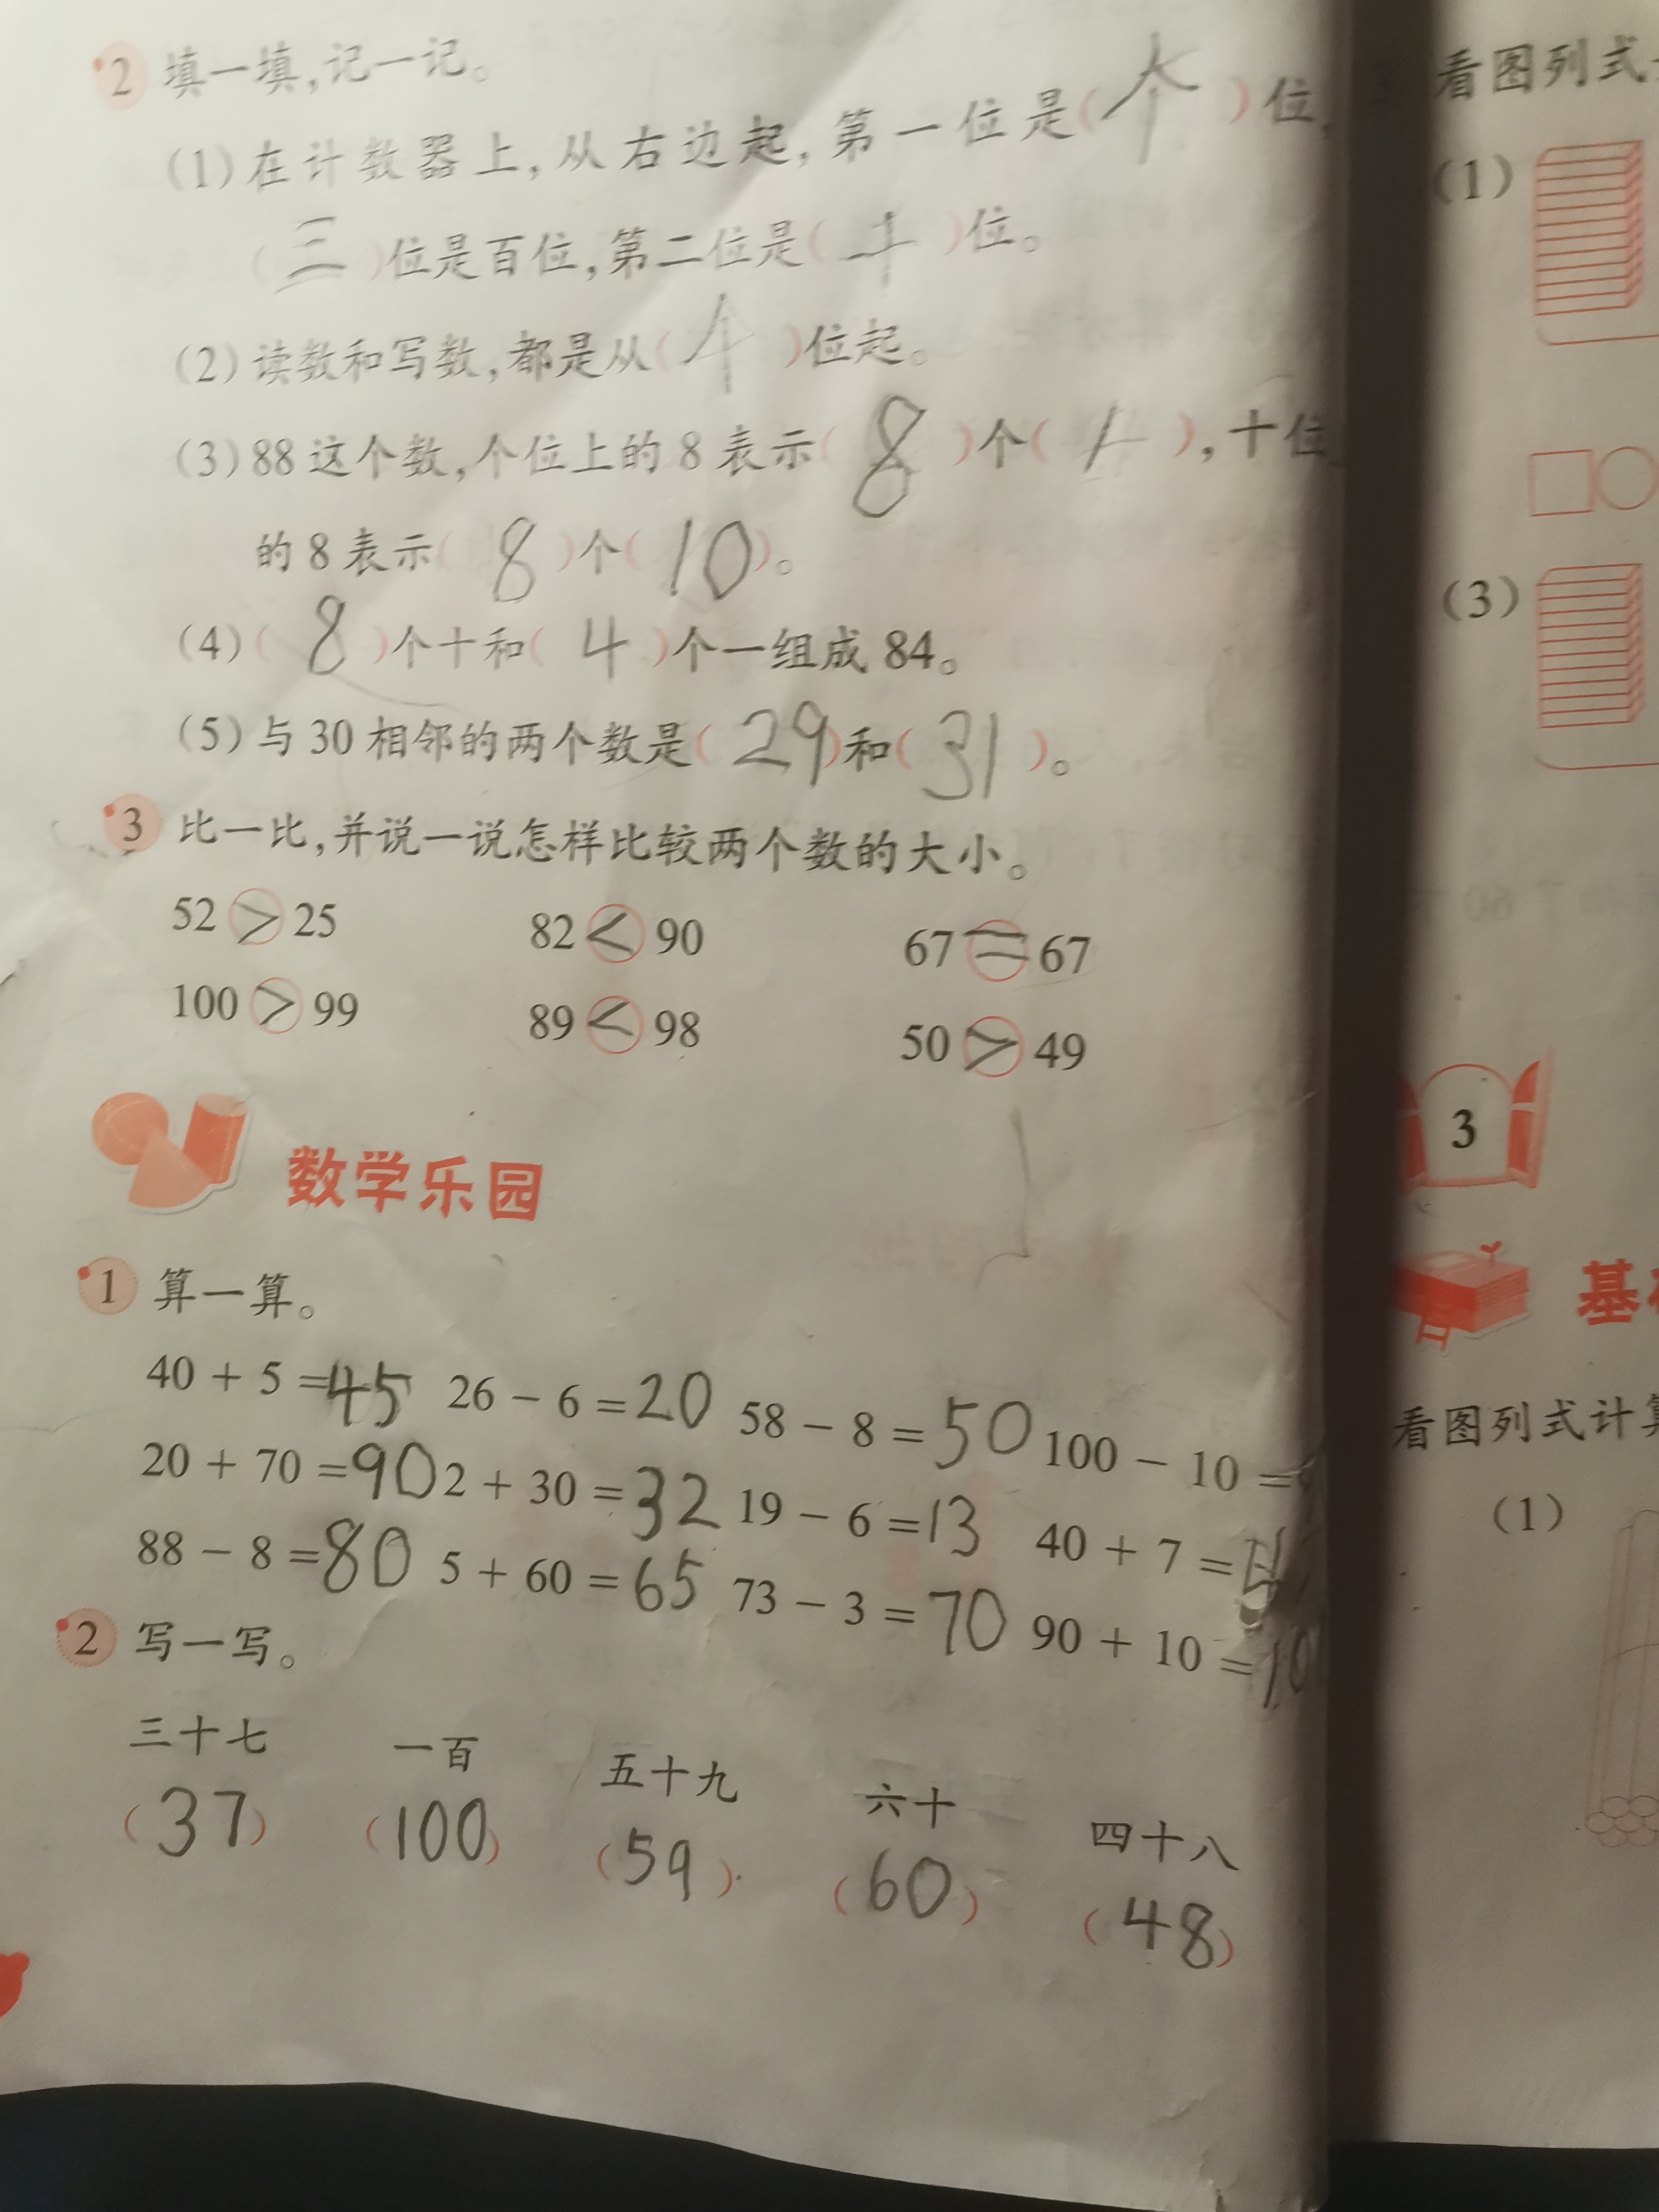 2 填一填,记一记。
(1)在计数器上,从右边起,第一位是(个)位,
(三)位是百位,第二位是(十)位。
(2)读数和写数,都是从( )位起。
(3)88这个数,个位上的8表示(8)个( ),十位
的8表示(8)个(10)。
(4)(8)个十和(4)个一组成84。
(5)与30相邻的两个数是(29)和(31)。
3 比一比,并说一说怎样比较两个数的大小。
52>25 82<90 67=67
100>99 89<98 50>49
数学乐园
1 算一算。
40+5=45 26-6=20 58-8=50 100-10=
20+70=90 2+30=32 19-6=13 40+7=
88-8=80 5+60=65 73-3=70 90+10=10
2 写一写。
三十七 一百 五十九 六十 四十八
(37) (100) (59) (60) (48)
看图列式
(1)
(3)
3
基
看图列式计算
(1)